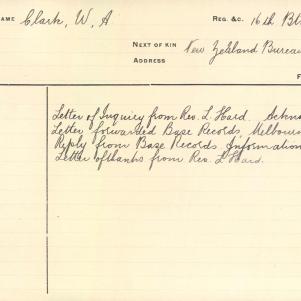 NAME Clark, W. A. REG. &C. 16th Bt
NEXT OF KIN New Zealand Bureau
ADDRESS
F
Letter of Inquiry from Rev. L. Hard.
Letter forwarded Base Records, Melbourn
Reply from Base Records. Information
Letter of thanks from Rev. L Hard.